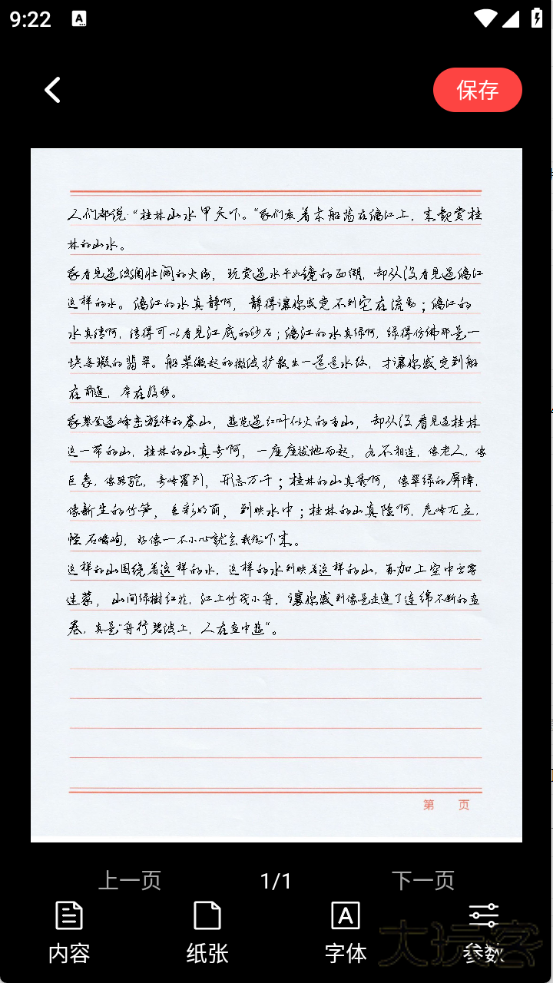 9:22
A
保存
人们都说:“桂林山水甲天下。”我们乘着木船荡在漓江上,来观赏桂
林的山水。
我看见过波澜壮阔的大海,玩赏过水平如镜的西湖,却从没看见过漓江
这样的水。漓江的水真静啊,静得让你感觉不到它在流动;漓江的
水真清啊,清得可以看见江底的沙石;漓江的水真绿啊,绿得仿佛那是一
块无瑕的翡翠。船桨激起的微波扩散出一道道水纹,才让你感觉到船
在前进,岸在后移。
我攀登过峰峦雄伟的泰山,游览过红叶似火的香山,却从没看见过桂林
这一带的山,桂林的山真奇啊,一座座拔地而起,各不相连,像老人,像
巨象,像骆驼,奇峰罗列,形态万千;桂林的山真秀啊,像翠绿的屏障,
像新生的竹笋,色彩明丽,倒映水中;桂林的山真险啊,危峰兀立,
怪石嶙峋,好像一不小心就会栽倒下来。
这样的山围绕着这样的水,这样的水倒映着这样的山,再加上空中云雾
迷蒙,山间绿树红花,江上竹筏小舟,让你感到像是走进了连绵不断的画
卷,真是“舟行碧波上,人在画中游”。
第 页
上一页 1/1 下一页
内容 纸张 字体 参数
大玩客